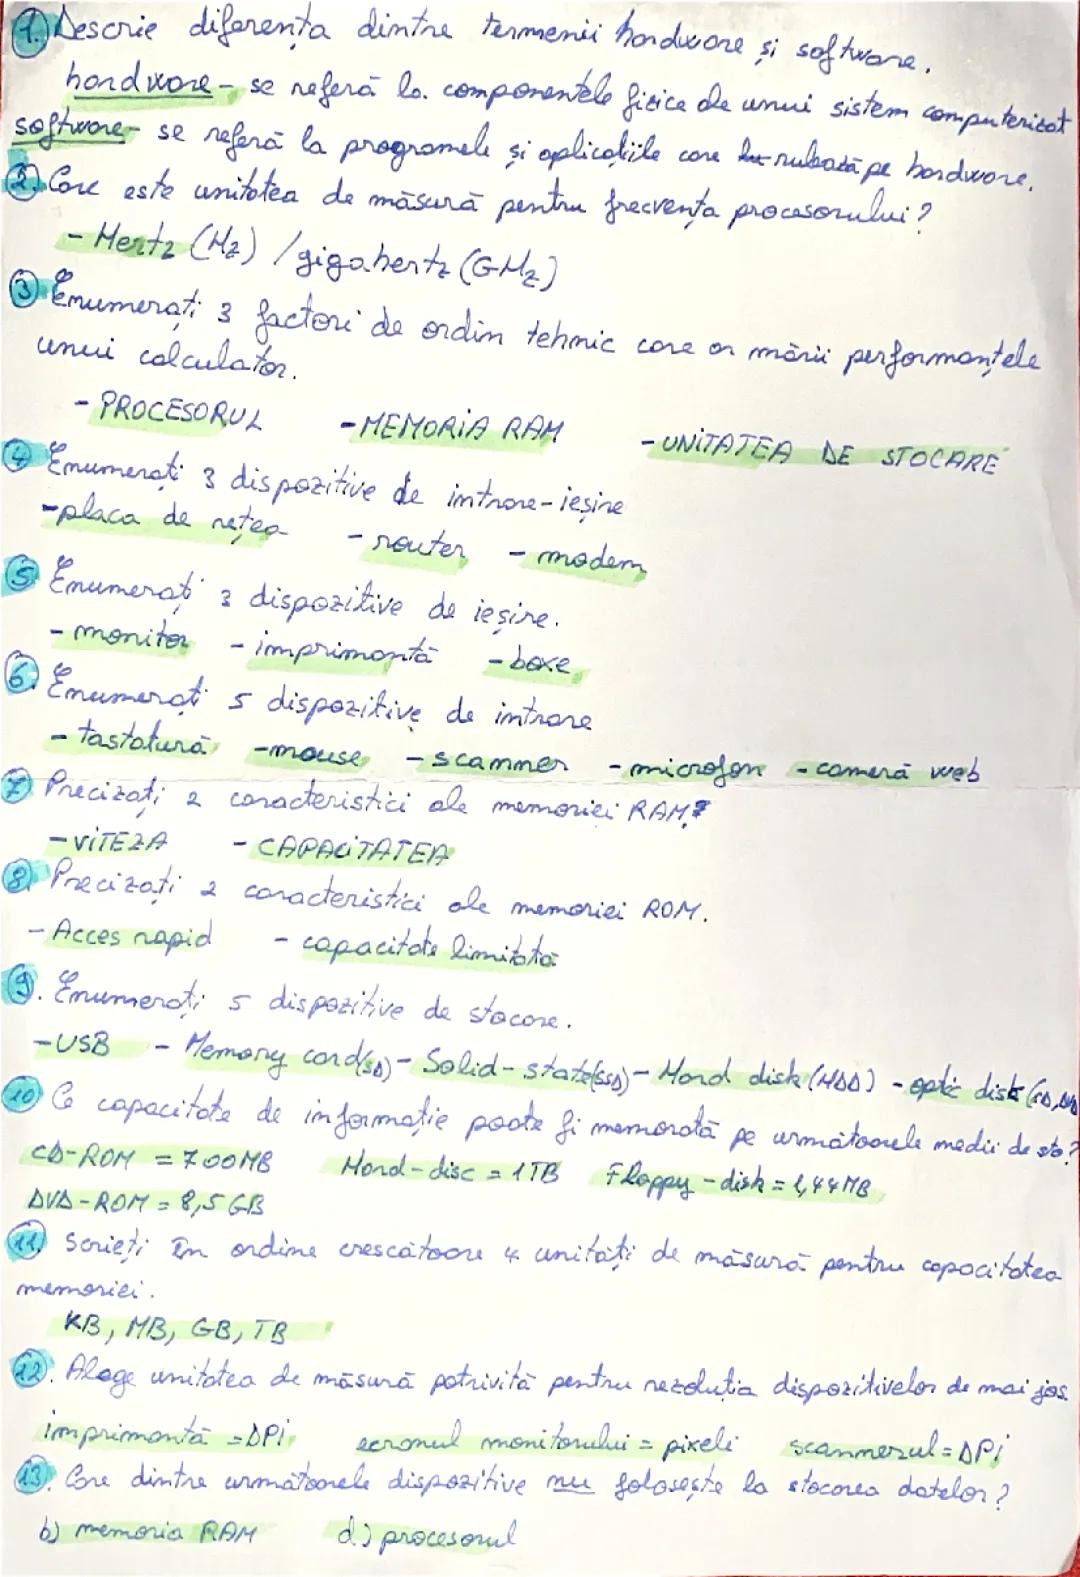 1. Descrie diferența dintre termenii hardware și software.
hardware - se referă la componentele fizice ale unui sistem computerizat
software - se referă la programele și aplicațiile care rulează pe hardware.
2. Care este unitatea de măsură pentru frecvența procesorului?
- Hertz (Hz) / gigahertz (GHz)
3 Enumerați 3 factori de ordin tehnic care or mări performanțele
unui calculator.
- PROCESORUL - MEMORIA RAM - UNITATEA DE STOCARE
4 Enumerați 3 dispozitive de intrare-ieșire
- placa de rețea - router - modem
5 Enumerați 3 dispozitive de ieșire.
- monitor - imprimantă - boxe
6. Enumerați 5 dispozitive de intrare
- tastatură - mouse - scanner - microfon - cameră web
7 Precizați 2 caracteristici ale memoriei RAM?
- VITEZA - CAPACITATEA
8. Precizați 2 caracteristici ale memoriei ROM.
- Acces rapid - capacitate limitată
9. Enumerați 5 dispozitive de stocare.
- USB - Memory card(SD) - Solid-state(SSD) - Hard disk (HDD) - optic disk (CD, DVD
10 Ce capacitate de informație poate fi memorată pe următoarele medii de sto?
CD-ROM = 700MB Hard-disc = 1TB Floppy-disk = 1,44MB
DVD-ROM = 8,5 GB
11. Scrieți în ordine crescătoare 4 unități de măsură pentru capacitatea
memoriei.
KB, MB, GB, TB
12. Alege unitatea de măsură potrivită pentru rezoluția dispozitivelor de mai jos
imprimantă = DPi ecranul monitorului = pixeli scannerul = DPi
13. Care dintre următoarele dispozitive nu folosește la stocarea datelor?
b) memoria RAM d) procesorul